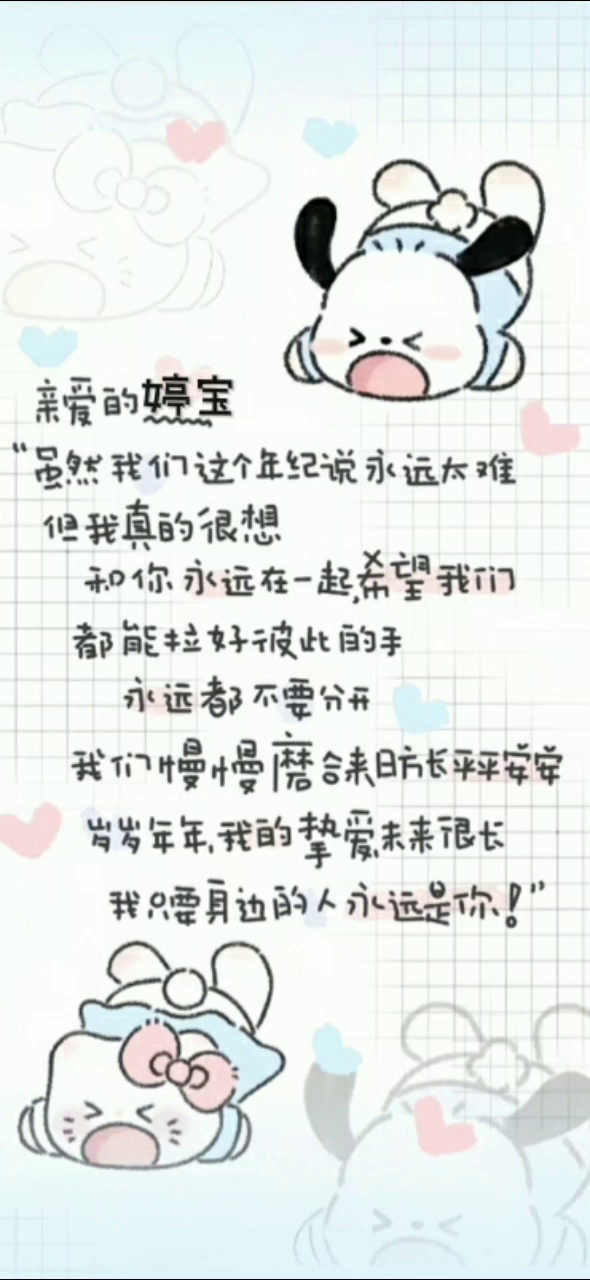 亲爱的婷宝
“虽然我们这个年纪说永远太难
但我真的很想
和你永远在一起,希望我们
都能拉好彼此的手
永远都不要分开
我们慢慢磨合来日方长平平安安
岁岁年年,我的挚爱,未来很长
我只要身边的人永远是你!”